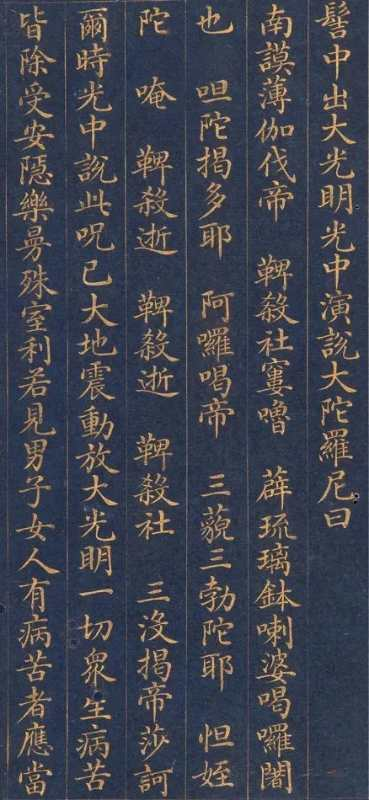 髻中出大光明光中演說大陀羅尼曰
南謨薄伽伐帝 鞞殺社窶嚕 薜琉璃鉢喇婆喝囉闍
也 呾陀揭多耶 阿囉喝帝 三藐三勃陀耶 怛姪
陀 唵 鞞殺逝 鞞殺逝 鞞殺社 三沒揭帝莎訶
爾時光中說此呪已大地震動放大光明一切衆生病苦
皆除受安隱樂曼殊室利若見男子女人有病苦者應當